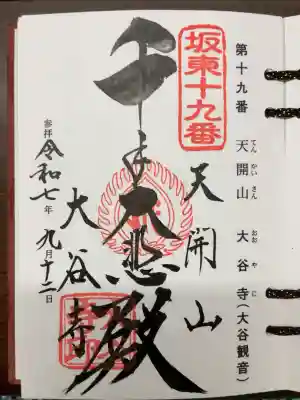 第十九番 天開山 大谷寺(大谷観音)
てん かい さん おお や じ
坂東十九番
天開山
千手大悲殿
大谷寺
参拝 令和七年 九月十二日